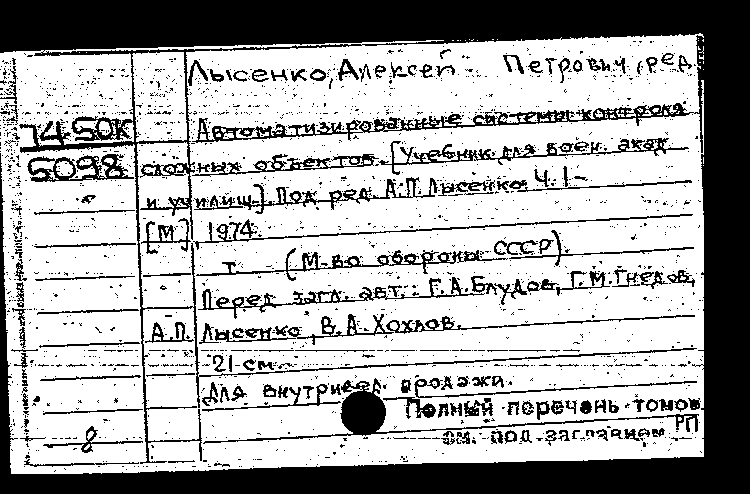 Лысенко, Алексей Петрович, ред.
74-50К Автоматизированные системы контроля
5098 сложных объектов. [Учебник для воен. акад.
и училищ]. Под ред. А.П. Лысенко. Ч. 1-
[М], 1974.
т (М-во обороны СССР).
Перед загл. авт.: Г.А. Блудов, Г.М. Гнедов,
А.П. Лысенко, В.А. Хохлов.
21 см.
Для внутривед. продажи.
Полный перечень томов
см. под заглавием РП
8